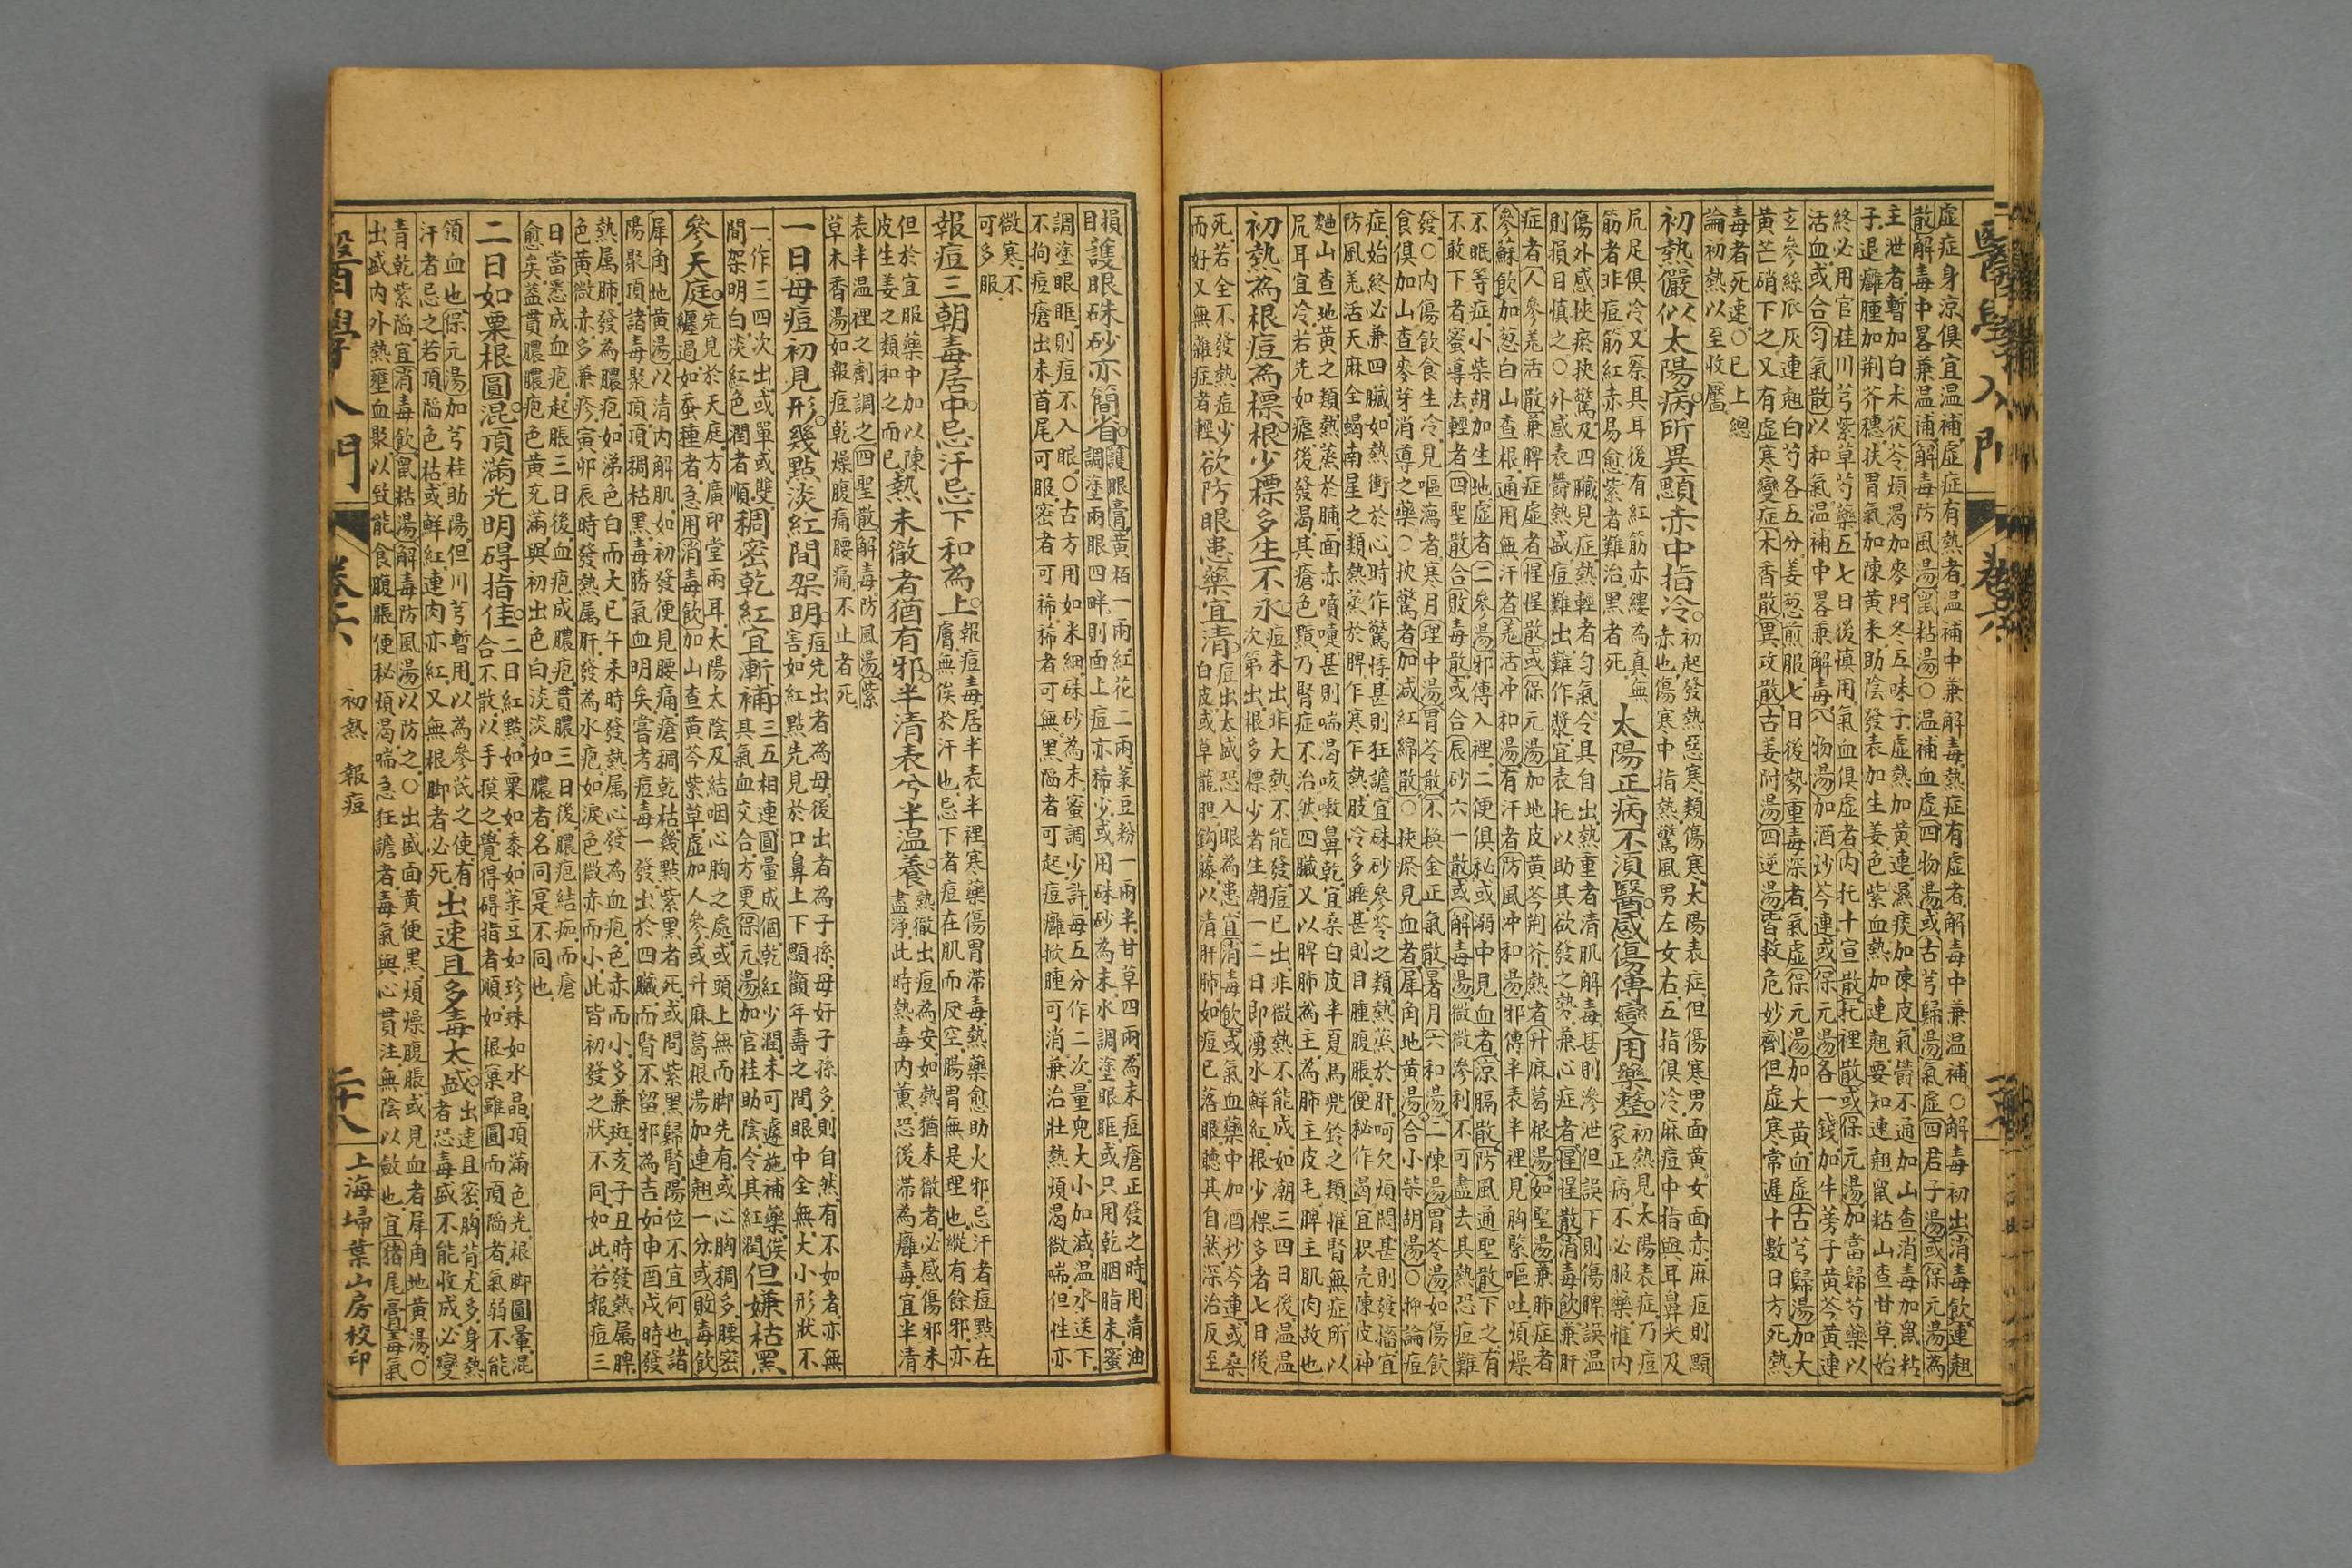 醫學入門
卷六
虛症身涼俱宜温補虛症有熱者温補中兼解毒熱症有虛者解毒中兼温補○解毒初出消毒飲連翹
散解毒中畧兼温補解毒防風湯鼠粘湯○温補血虛四物湯或古芎歸湯氣虛四君子湯或保元湯為
主泄者暫加白朮茯苓煩渴加麥門冬五味子虛熱加黃連濕痰加陳皮氣欝不通加山查消毒加鼠粘
子退癰腫加荆芥穗扶胃氣加陳黃米助陰發表加生姜色紫血熱加連翹要知連翹鼠粘山查甘草始
終必用官桂川芎紫草芍藥五七日後慎用氣血俱虛者内托十宣散托裡散或保元湯加當歸芍藥以
活血或合勻氣散以和氣温補中畧兼解毒八物湯加酒炒芩連或保元湯各一錢加牛蒡子黃芩黃連
玄參絲瓜灰連翹白芍各五分姜葱煎服七日後勢重毒深者氣虛保元湯加大黃血虛古芎歸湯加大
黃芒硝下之又有虛寒變症木香散異攻散古姜附湯四逆湯皆救危妙劑但虛寒常遲十數日方死熱
毒者死速○已上總
論初熱以至收靨
初熱儼似太陽病所異顋赤中指冷
初起發熱惡寒類傷寒太陽表症但傷寒男面黃女面赤麻痘則顋
赤也傷寒中指熱驚風男左女右五指俱冷麻痘中指與耳鼻尖及
尻足俱冷又察其耳後有紅筋赤縷為真無
筋者非痘筋紅赤易愈紫者難治黑者死
太陽正病不須醫感傷傳變用藥整
初熱見太陽表症乃痘
家正病不必服藥惟内
傷外感挾瘀挾驚及四臟見症熱輕者勻氣令其自出熱重者清肌解毒甚則滲泄但誤下則傷脾誤温
則損目慎之○外感表欝熱盛痘難出難作漿宜表托以助其欲發之勢兼心症者惺惺散消毒飲兼肝
症者人參羌活散兼脾症虛者惺惺散或保元湯加地皮黃芩荆芥熱者升麻葛根湯如聖湯兼肺症者
參蘇飲加葱白山查根通用無汗者羌活冲和湯有汗者防風冲和湯邪傳半表半裡見胸緊嘔吐煩燥
不眠等症小柴胡加生地虛者二參湯邪傳入裡二便俱秘或溺中見血者凉膈散防風通聖散下之有
不敢下者蜜導法輕者四聖散合敗毒散或合辰砂六一散或解毒湯微微滲利不可盡去其熱恐痘難
發○内傷飲食生冷見嘔瀉者寒月理中湯胃苓散不换金正氣散暑月六和湯二陳湯胃苓湯如傷飲
食俱加山查麥芽消導之藥○挾驚者加减紅綿散○挾瘀見血者犀角地黃湯合小柴胡湯○抑論痘
症始終必兼四臟如熱衝於心時作驚悸甚則狂譫宜硃砂參苓之類熱蒸於肝呵欠煩悶甚則發搐宜
防風羌活天麻全蝎南星之類熱蒸於脾乍寒乍熱肢冷多睡甚則目腫腹脹便秘作渴宜枳壳陳皮神
麯山查地黃之類熱蒸於肺面赤噴嚏甚則喘渴咳嗽鼻乾宜桑白皮半夏馬兜鈴之類惟腎無症所以
尻耳宜冷若先如瘧後發渴其瘡色黯乃腎症不治然四臟又以脾肺為主為肺主皮毛脾主肌肉故也
初熱為根痘為標根少標多生不永
痘未出非大熱不能發痘已出非微熱不能成如潮三四日後温温
次第出根多標少者生潮一二日即湧水鮮紅根少標多者七日後
死若全不發熱痘少
而好又無雜症者輕
欲防眼患藥宜清
痘出太盛恐入眼為患宜消毒飲或氣血藥中加酒炒芩連或桑
白皮或草龍胆鈎藤以清肝肺如痘已落眼聽其自然深治反至
損
目
護眼硃砂亦簡省
護眼膏黃栢一兩紅花二兩菉豆粉一兩半甘草四兩為末痘瘡正發之時用清油
調塗兩眼四畔則面上痘亦稀少或用硃砂為末水調塗眼眶或只用乾胭脂末蜜
調塗眼眶則痘不入眼○古方用如米細硃砂為末蜜調少許每五分作二次量兜大小加减温水送下
不拘痘瘡出未首尾可服密者可稀稀者可無黑陥者可起痘癰掀腫可消兼治壯熱煩渴微喘但性亦
微寒不
可多服
報痘三朝毒居中忌汗忌下和為上
報痘毒居半表半裡寒藥傷胃滯毒熱藥愈助火邪忌汗者痘點在
膚無俟於汗也忌下者痘在肌而反空腸胃無是理也縱有餘邪亦
但於宜服藥中加以陳
皮生姜之類和之而已
熱未徹者猶有邪半清表兮半温養
熱徹出痘為安如熱猶未徹者必感傷邪未
盡淨此時熱毒内薰恐後滯為癰毒宜半清
表半温裡之劑調之四聖散解毒防風湯紫
草木香湯如報痘乾燥腹痛腰痛不止者死
一日母痘初見形幾點淡紅間架明
痘先出者為母後出者為子孫母好子孫多則自然有不如者亦無
害如紅點先見於口鼻上下顋顴年壽之間眼中全無大小形狀不
一作三四次出或單或雙
間架明白淡紅色潤者順
稠密乾紅宜漸補
三五相連圓暈成個乾紅少潤未可遽施補藥俟
其氣血交合方更保元湯加官桂助陰令其紅潤
但嫌枯黑
參天庭
先見於天庭方廣印堂兩耳太陽太陰及結咽心胸之處或頭上無而脚先有或心胸稠多腰密
纒過如蚕種者急用消毒飲加山查黃芩紫草虛加人參或升麻葛根湯加連翹一分或敗毒飲
犀角地黃湯以清内解肌如初發便見腰痛瘡稠乾枯幾點紫黑者死或問紫黑歸腎陽位不宜何也諸
陽聚頂諸毒聚頂頂稠枯黑毒勝氣血明矣嘗考痘毒一發出於四臟而腎不留邪為吉如申酉戌時發
熱属肺發為膿疱如涕色白而大已午未時發熱属心發為血疱色赤而小多兼斑亥子丑時發熱属脾
色黃微赤多兼疹寅卯辰時發熱属肝發為水疱如淚色微赤而小此皆初發之狀不同如此若報痘三
日當悉成血疱起脹三日後血疱成膿疱貫膿三日後膿疱結痂而瘡
愈矣葢貫膿膿疱色黃充滿與初出色白淡淡如膿者名同寔不同也
二日如粟根圓混頂滿光明碍指佳
二日紅點如粟如黍如菉豆如珍珠如水晶頂滿色光根脚圓暈混
合不散以手摸之覺得碍指者順如根窠雖圓而頂陥者氣弱不能
領血也保元湯加芎桂助陽但川芎暫用以為參芪之使有
汗者忌之若頂陥色枯或鮮紅連肉亦紅又無根脚者必死
出速且多毒太盛
出速且密胸背尤多身熱
者恐毒盛不能收成必變
青乾紫陥宜消毒飲鼠粘湯解毒防風湯以防之○出盛面黃便黑煩燥腹脹或見血者犀角地黃湯○
出盛内外熱壅血聚以致能食腹脹便秘煩渴喘急狂譫者毒氣與心貫注無陰以斂也宜猪尾膏毒氣
醫學入門
卷六
初熱　報痘
二十八
上海埽葉山房校印